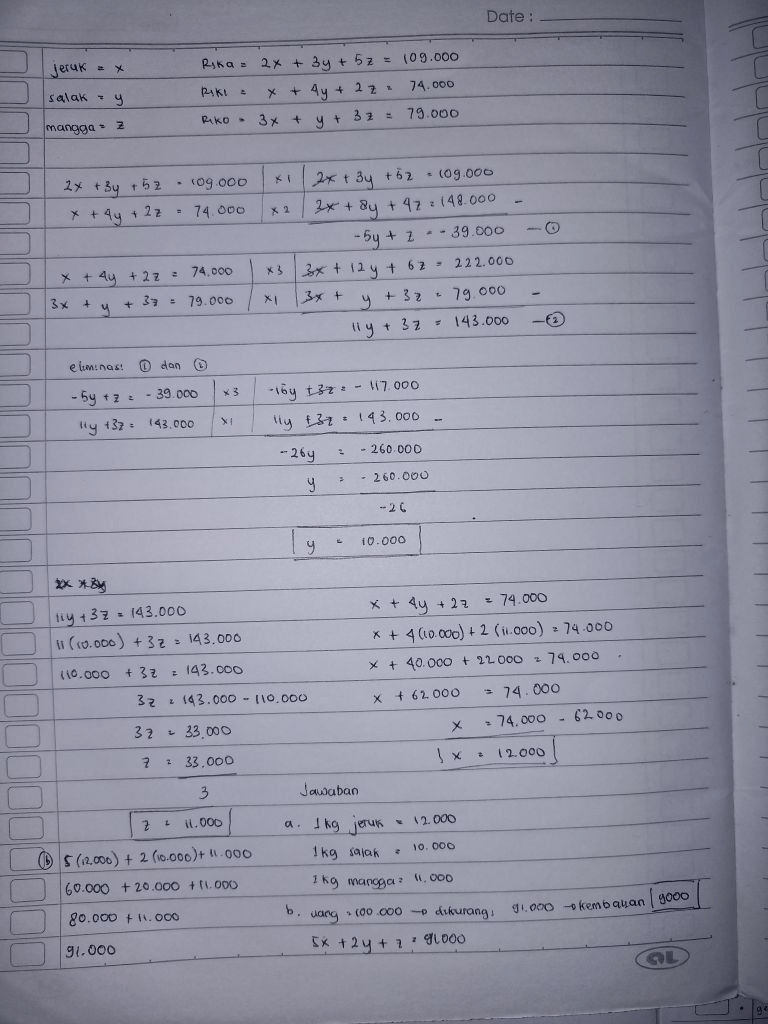 Date :
jeruk = x Rika = 2x + 3y + 5z = 109.000
salak = y Riki = x + 4y + 2z = 74.000
mangga = z Riko = 3x + y + 3z = 79.000
2x + 3y + 5z = 109.000 | x1 | 2x + 3y + 5z = 109.000
x + 4y + 2z = 74.000 | x2 | 2x + 8y + 4z = 148.000 -
-5y + z = -39.000 — ①
x + 4y + 2z = 74.000 | x3 | 3x + 12y + 6z = 222.000
3x + y + 3z = 79.000 | x1 | 3x + y + 3z = 79.000 -
11y + 3z = 143.000 — ②
eliminasi ① dan ②
-5y + z = -39.000 | x3 | -15y + 3z = -117.000
11y + 3z = 143.000 | x1 | 11y + 3z = 143.000 -
-26y = -260.000
y = -260.000
-26
y = 10.000
11y + 3z = 143.000 x + 4y + 2z = 74.000
11(10.000) + 3z = 143.000 x + 4(10.000) + 2(11.000) = 74.000
110.000 + 3z = 143.000 x + 40.000 + 22.000 = 74.000
3z = 143.000 - 110.000 x + 62.000 = 74.000
3z = 33.000 x = 74.000 - 62.000
z = 33.000 x = 12.000
3 Jawaban
z = 11.000 a. 1kg jeruk = 12.000
ⓑ 5(12.000) + 2(10.000) + 11.000 1kg salak = 10.000
60.000 + 20.000 + 11.000 1kg mangga = 11.000
80.000 + 11.000 b. uang = 100.000 → dikurangi 91.000 → kembalian 9000
91.000 5x + 2y + z = 91.000